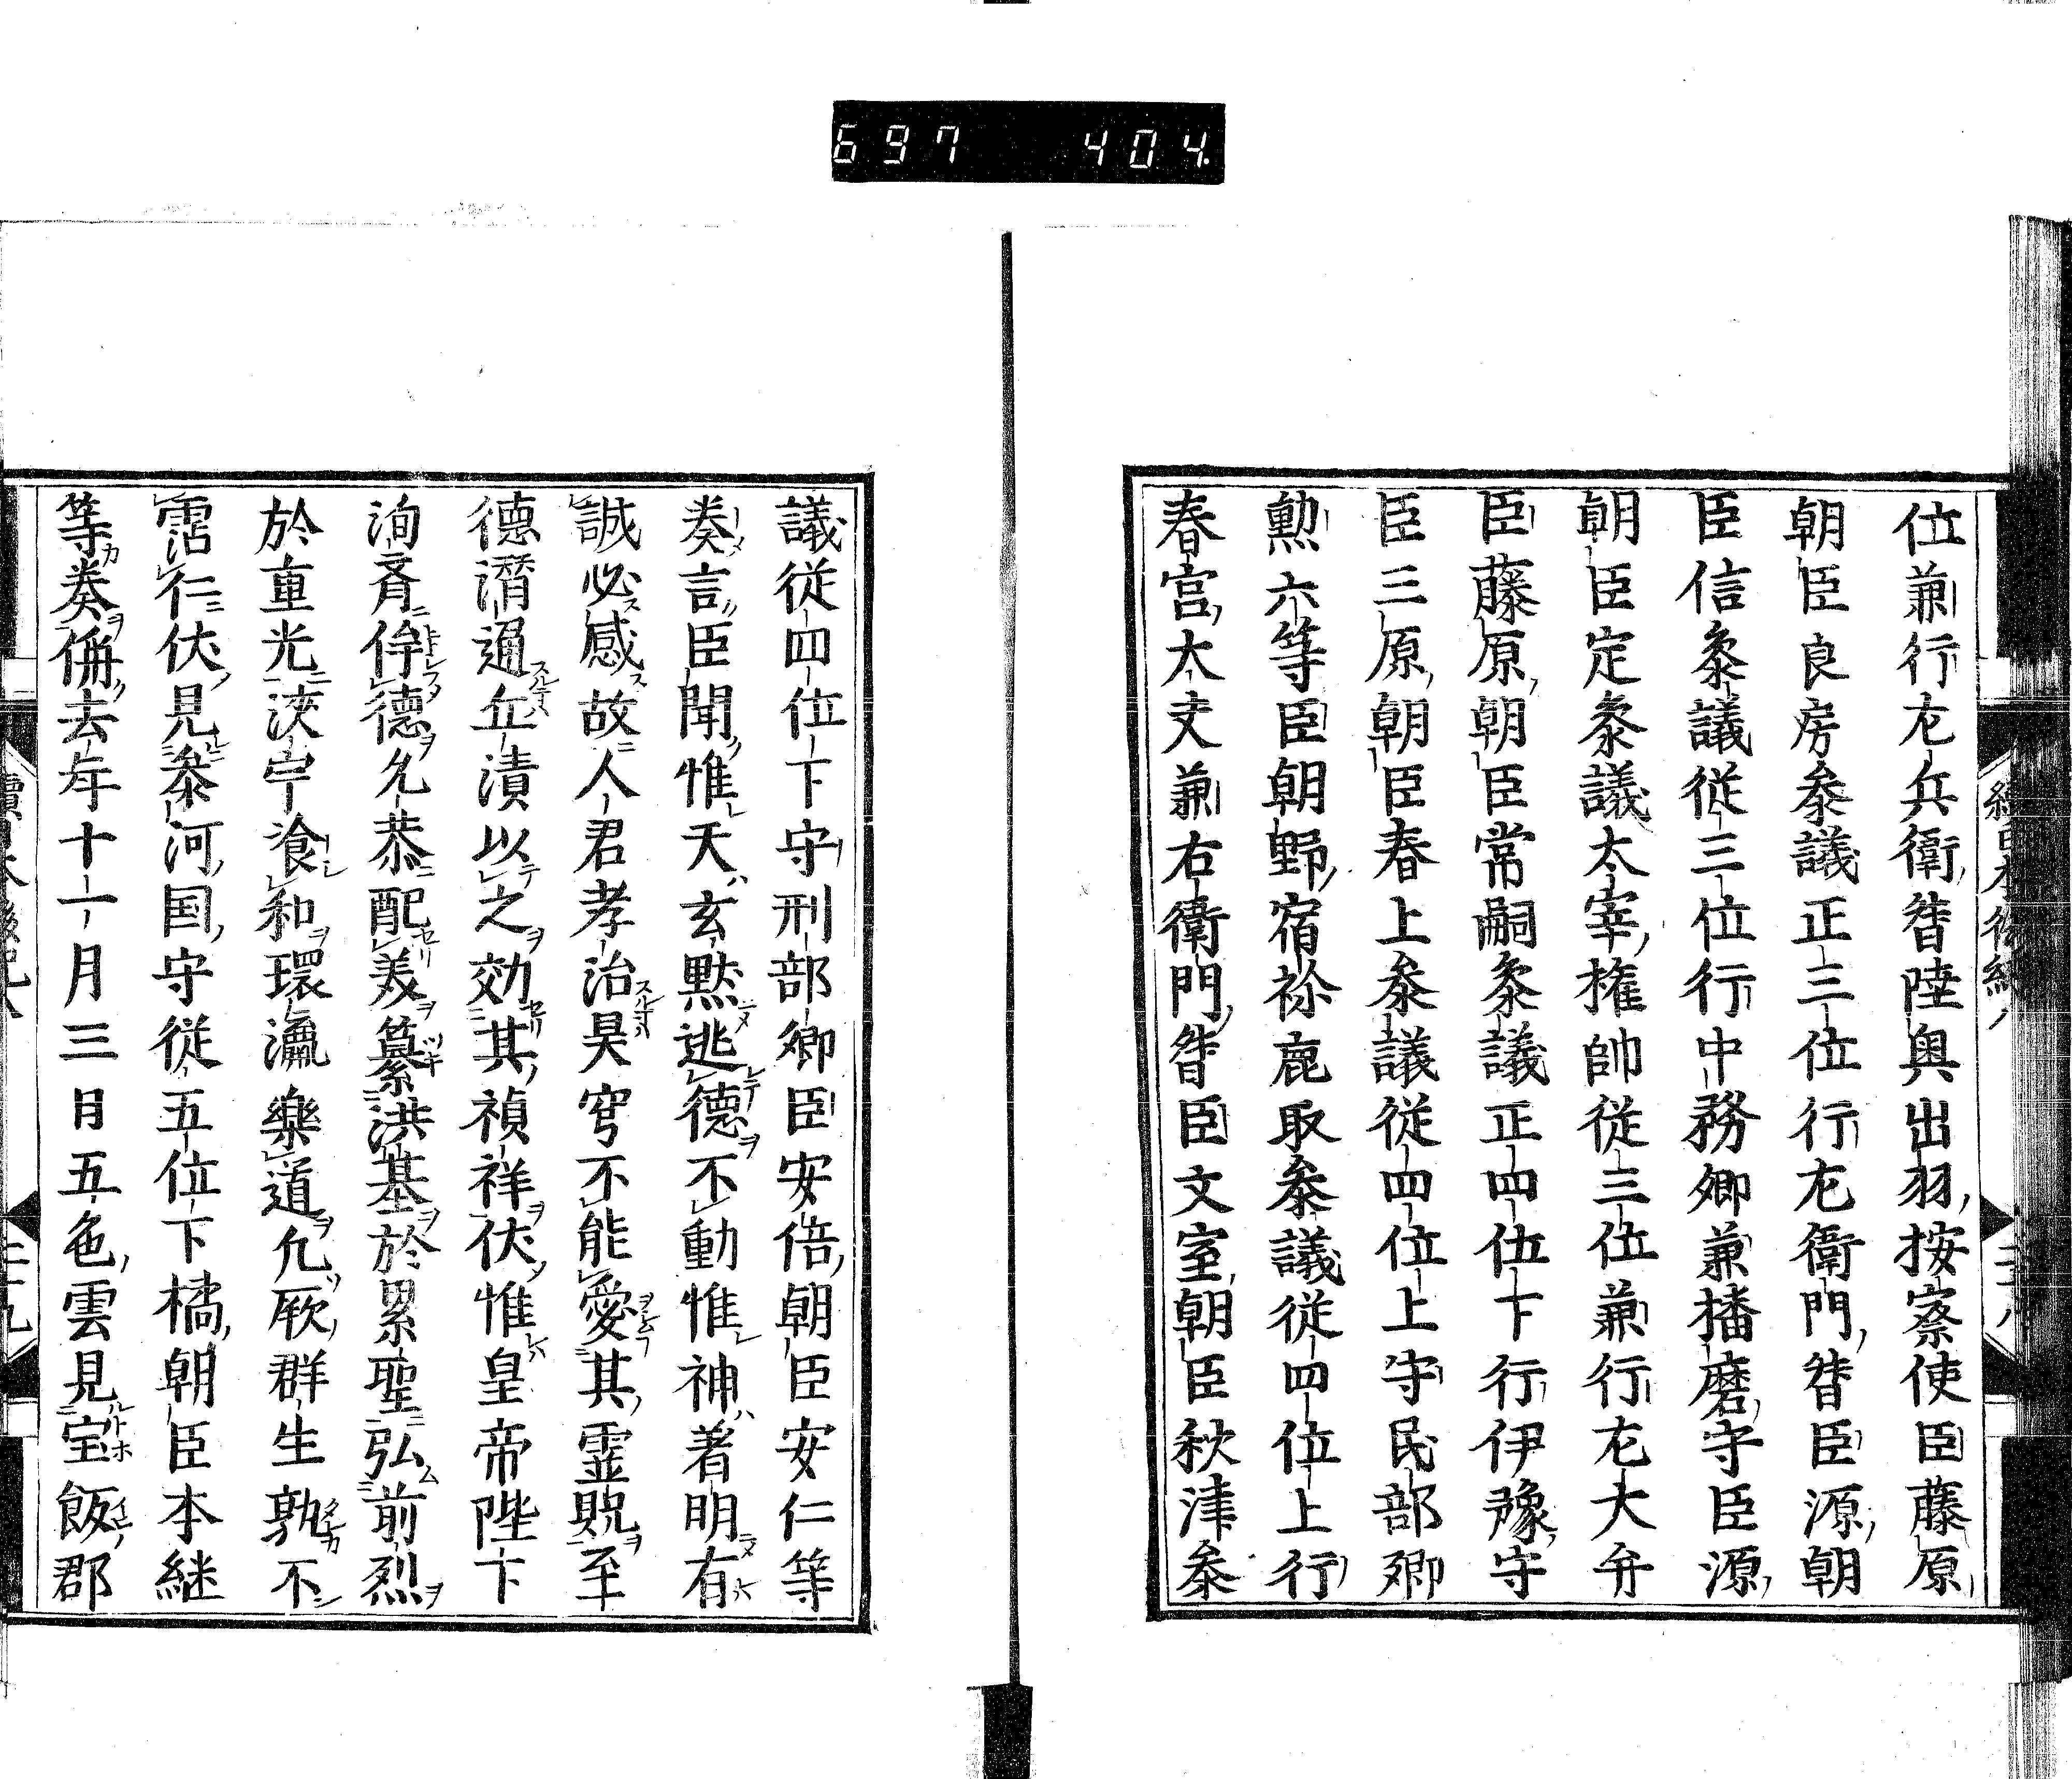 697 404.
位兼行左兵衛督陸奥出羽按察使臣藤原
朝臣良房参議正三位行左衛門督臣源朝
臣信参議従三位行中務卿兼播磨守臣源
朝臣定参議太宰権帥従三位兼行左大弁
臣藤原朝臣常嗣参議正四位下行伊豫守
臣三原朝臣春上参議従四位上守民部卿
勲六等臣朝野宿祢鹿取参議従四位上行
春宮大夫兼右衛門督臣文室朝臣秋津参
議従四位下守刑部卿臣安倍朝臣安仁等
奏言臣聞惟天玄黙逃德不動惟神着明有
誠必感故人君孝治昊穹不能愛其霊貺至
德潜通丘瀆以之効其禎祥伏惟皇帝陛下
洵斉侔德允恭配美纂洪基於累聖弘前烈
於重光浹宇飡和環瀛樂道凢厥群生孰不
霑仁伏見参河国守従五位下橘朝臣本継
等奏偁去年十一月三日五色雲見宝飯郡